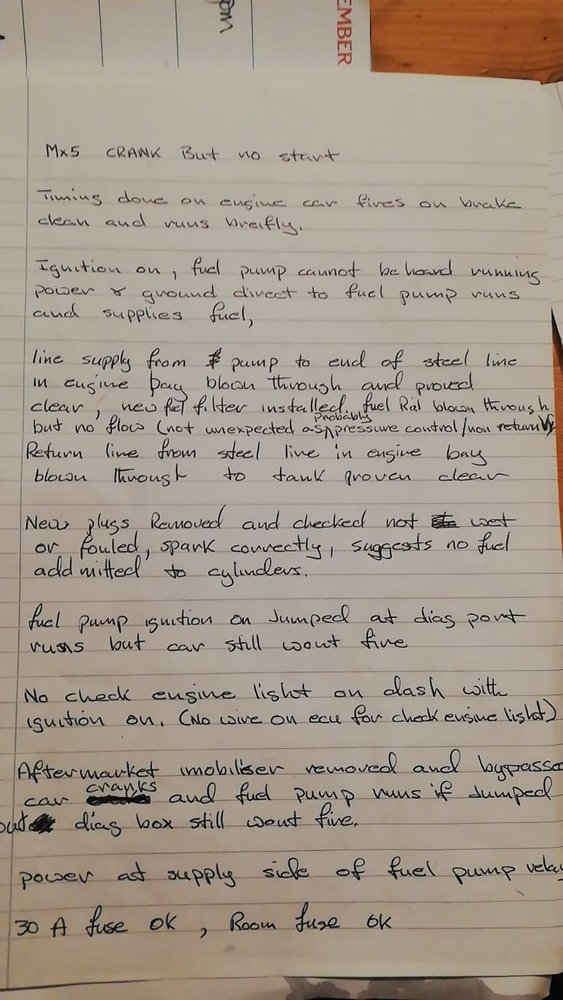 EMBER
Mx5 CRANK But no start
Timing done on engine car fires on brake
clean and runs breifly.
Ignition on, fuel pump cannot be heard running
power & ground direct to fuel pump runs
and supplies fuel,
line supply from pump to end of steel line
in engine bay blown through and proved
clear, new fuel filter installed, fuel Rail blown through
but no flow (not unexpected as probably pressure control/non return V)
Return line from steel line in engine bay
blown through to tank proven clear
New plugs Removed and checked not wet
or fouled, spark correctly, suggests no fuel
addmitted to cylinders.
fuel pump ignition on Jumped at diag port
runs but car still wont fire
No check engine light on dash with
ignition on. (No wire on ecu for check engine light)
Aftermarket imobiliser removed and bypasse
car cranks and fuel pump runs if Jumped
diag box still wont fire.
power at supply side of fuel pump relay
30 A fuse OK, Room fuse OK